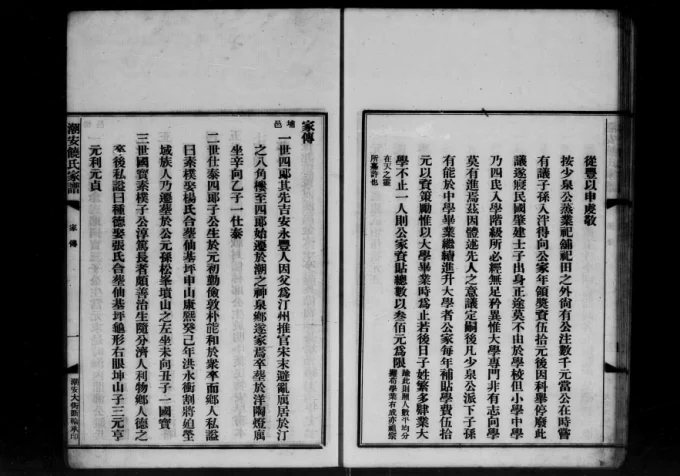 從豐以申虔敬
按少泉公蒸業祀舖祀田之外尙有公注數千元當公在時嘗
有議子孫入泮得向公家年領奬賚伍拾元後因科舉停廢此
議遂寢民國肇建士子出身正途莫不由於學校但小學中學
乃四民人學階級所必經無足矜異惟大學專門非有志向學
莫有進焉茲因體遂先人之意議定嗣後凡少泉公派下子孫
有能於中學畢業繼續進升大學者公家每年補貼學費伍拾
元以資策勵惟以大學畢業時爲止若後日子姓繁多肄業大
學不止一人則公家資貼總數以叁佰元爲限
逾此則照人數平均分
在天之靈
所嘉許也
潮安饒氏家譜
家傳
潮安大
家傳
埔邑
一世四郞其先吉安永豐人因父爲汀州推官宋末避亂厲居於汀
之八角樓至四郞始遷於潮之神泉鄉遂家焉卒塟於洋陶燈厲
坐辛向乙子一仕泰
二世仕泰四郞子公生於元初勤儉敦朴能和於衆卒而鄉人私謚
曰素樸娶楊氏合塟仙基坪申山康熙癸己年洪水衝割將廹塋
域族人乃遷塟於公元孫松峯墳山之左坐未向丑子一國寶
三世國寶素樸子公淳篤長者頗善治生隨分濟人利物鄉人德之
卒後私謚曰種德娶張氏合塟仙基坪龜形右眼坤山子三元亨
元利元貞